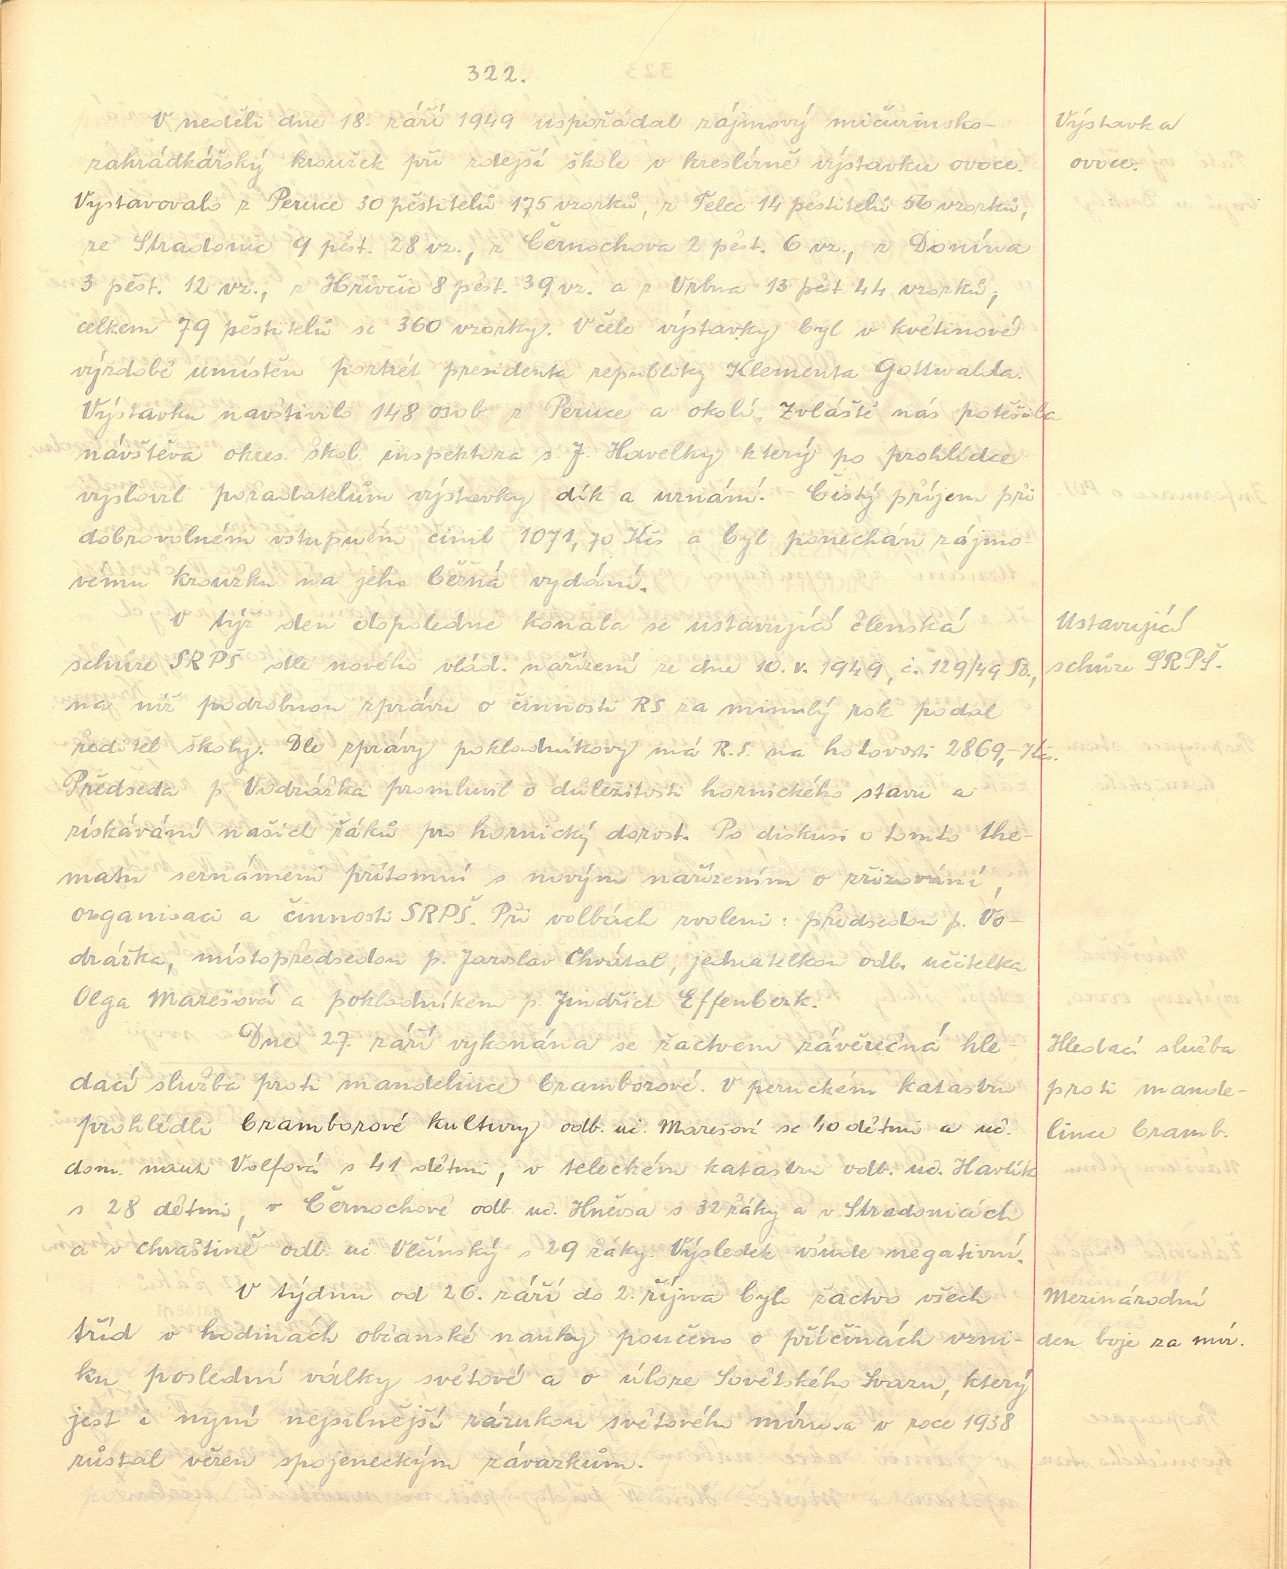 322.
V neděli dne 18. září 1949 uspořádal zájmový mičurinsko-
zahrádkářský kroužek při zdejší škole v kreslírně výstavku ovoce.
Vystavovalo z Peruce 30 pěstitelů 175 vzorků, z Telec 14 pěstitelů 56 vzorků,
ze Stradonic 9 pěst. 28 vz., z Černochova 2 pěst. 6 vz., z Donína
3 pěst. 12 vz., z Hřivčic 8 pěst. 39 vz. a z Vrbna 13 pěst 44 vzorků,
celkem 79 pěstitelů se 360 vzorky. V čele výstavky byl v květinové
výzdobě umístěn portrét presidenta republiky Klementa Gottwalda.
Výstavku navštívilo 148 osob z Peruce a okolí. Zvláště nás potěšila
návštěva okres. škol. inspektora s. J. Havelky který po prohlídce
vyslovil pořadatelům výstavky dík a uznání. Čistý příjem při
dobrovolném vstupném činil 1071,70 Kčs a byl ponechán zájmo-
vému kroužku na jeho běžná vydání.
V týž den dopoledne konala se ustavující členská
schůze SRPŠ dle nového vlád. nařízení ze dne 10. V. 1949, č. 129/49 Sb.,
na níž podrobnou zprávu o činnosti RS za minulý rok podal
ředitel školy. Dle zprávy pokladníkovy má R.S. na hotovosti 2869,- Kčs.
Předseda p. Vodrážka promluvil o důležitosti hornického stavu a
získávání našich žáků pro hornický dorost. Po diskusi o tomto the-
matu seznámeni přítomní s novým nařízením o zřizování,
organisaci a činnosti SRPŠ. Při volbách zvoleni: předsedou p. Vo-
drážka, místopředsedou p. Jaroslav Chvátal, jednatelkou odb. učitelka
Olga Marešová a pokladníkem p. Jindřich Effenberk.
Dne 27. září vykonána se žactvem závěrečná hle-
dací služba proti mandelince bramborové. V peruckém katastru
prohlédli bramborové kultury odb. uč. Marešová se 40 dětmi a uč.
dom. nauk Volfová s 41 dětmi, v teleckém katastru odb. uč. Havlík
s 28 dětmi, v Černochově odb. uč. Hněvsa s 32 žáky a v Stradonicích
a v Chrastině odb. uč Vlčinský s 29 žáky. Výsledek všude negativní.
V týdnu od 26. září do 2. října bylo žactvo všech
tříd v hodinách občanské nauky poučeno o příčinách vzni-
ku poslední války světové a o úloze Sovětského Svazu, který
jest i nyní nejsilnější zárukou světového míru a v roce 1938
zůstal věren spojeneckým závazkům.
Výstavka
ovoce.
Ustavující
schůze SRPŠ.
Hledací služba
proti mande-
lince bramb.
Mezinárodní
den boje za mír.